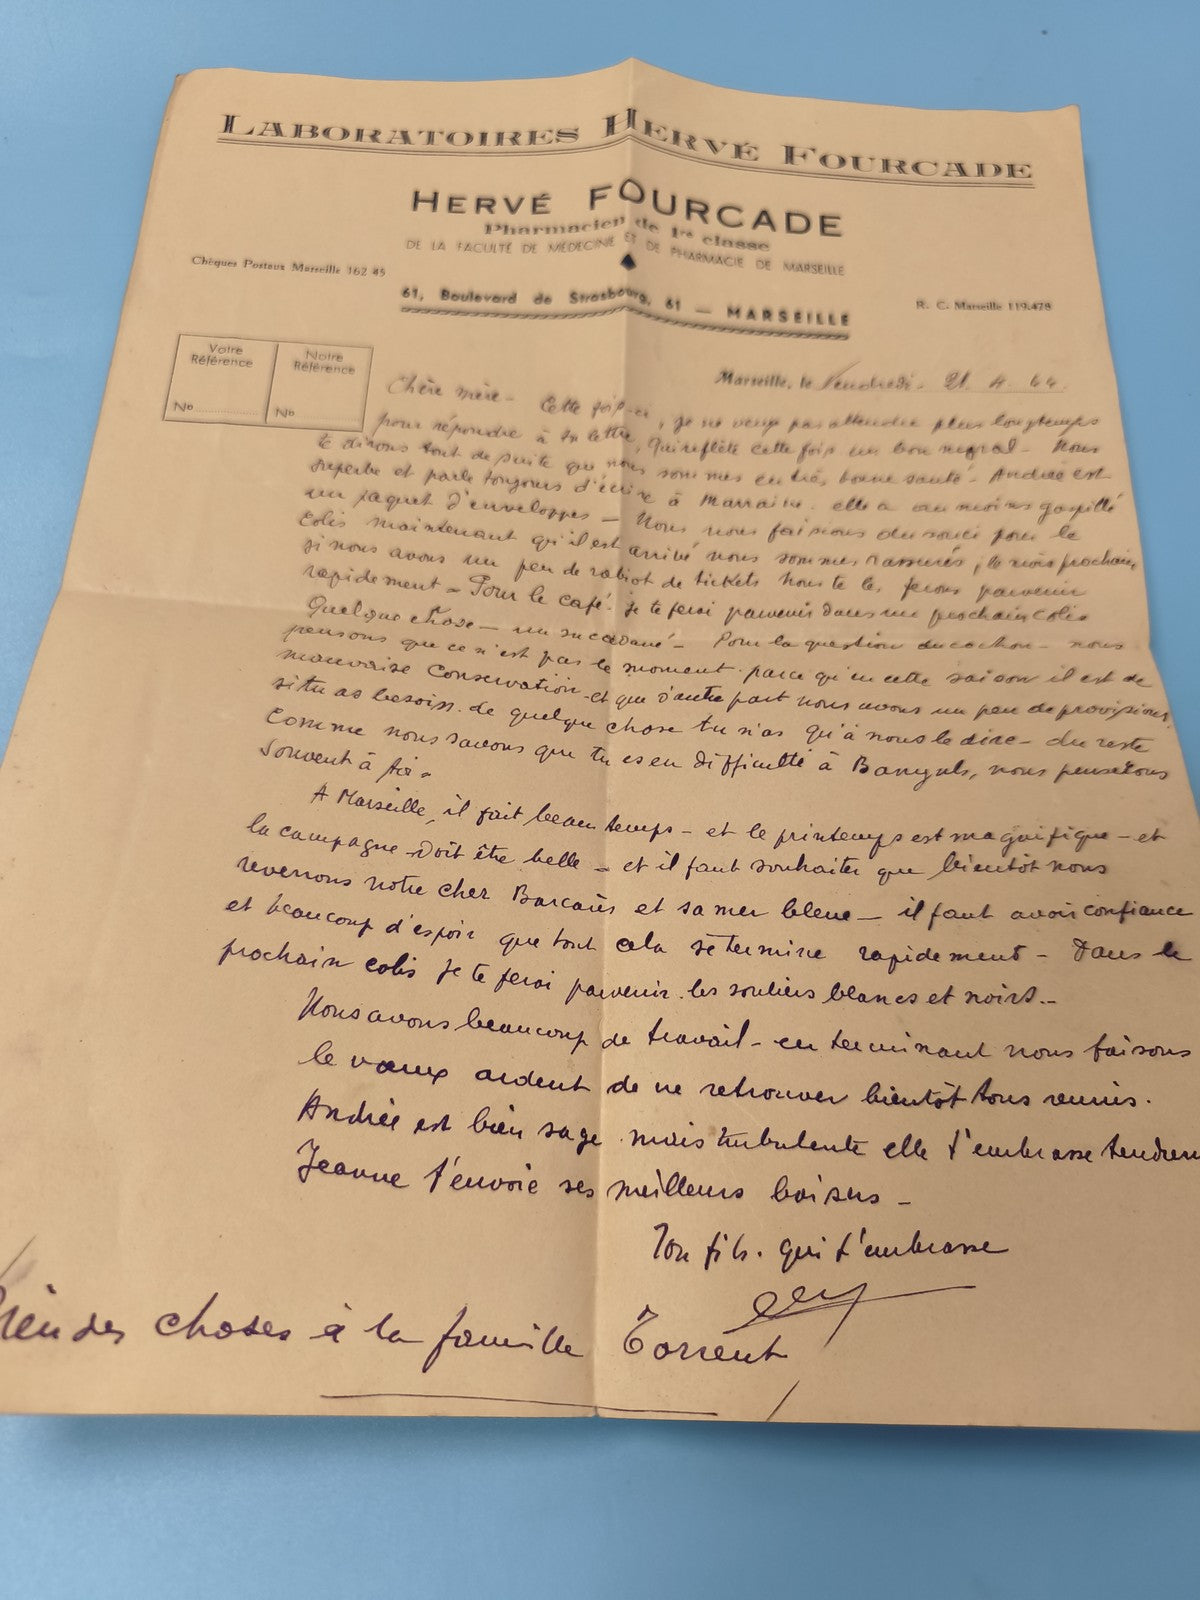 LABORATOIRES HERVÉ FOURCADE
HERVÉ FOURCADE
Pharmacien de 1re classe
DE LA FACULTÉ DE MÉDECINE ET DE PHARMACIE DE MARSEILLE
Chèques Postaux Marseille 162 45
61, Boulevard de Strasbourg, 61 — MARSEILLE
R. C. Marseille 119.478
Votre Référence
No
Notre Référence
No
Marseille, le Vendredi. 21. 4. 44.
Chère mère - Cette fois-ci, je ne veux pas attendre plus longtemps
pour répondre à ta lettre, qui reflète cette fois un bon moral - Nous
te disons tout de suite que nous sommes en très bonne santé - Andrée est
superbe et parle toujours d'écrire à Marraine. elle a au moins gaspillé
un paquet d'enveloppes - Nous nous faisions du souci pour le
colis maintenant qu'il est arrivé nous sommes rassurés, le mois prochain,
si nous avons un peu de rabiot de tickets nous te les ferons parvenir
rapidement - Pour le café. je te ferai parvenir dans un prochain colis
Quelque chose - un succédané - Pour la question du cochon - nous
pensons que ce n'est pas le moment. parce qu'en cette saison il est de
mauvaise conservation - et que d'autre part nous avons un peu de provisions,
si tu as besoin. de quelque chose tu n'as qu'à nous le dire - du reste
comme nous savons que tu es en difficulté à Banyuls, nous pensons
souvent à toi.
A Marseille, il fait beau temps - et le printemps est magnifique - et
la campagne doit être belle - et il faut souhaiter que bientôt nous
reverrons notre cher Barcarès et sa mer bleue - il faut avoir confiance
et beaucoup d'espoir que tout cela se termine rapidement - Dans le
prochain colis je te ferai parvenir. les souliers blancs et noirs.-
Nous avons beaucoup de travail - en terminant nous faisons
le vœux ardent de ne retrouver bientôt tous reunis.
Andrée est bien sage. mais turbulente elle t'embrasse tendrem
Jeanne t'envoie ses meilleurs baisers -
Ton fils. qui t'embrasse
Bien des choses à la famille Torrent